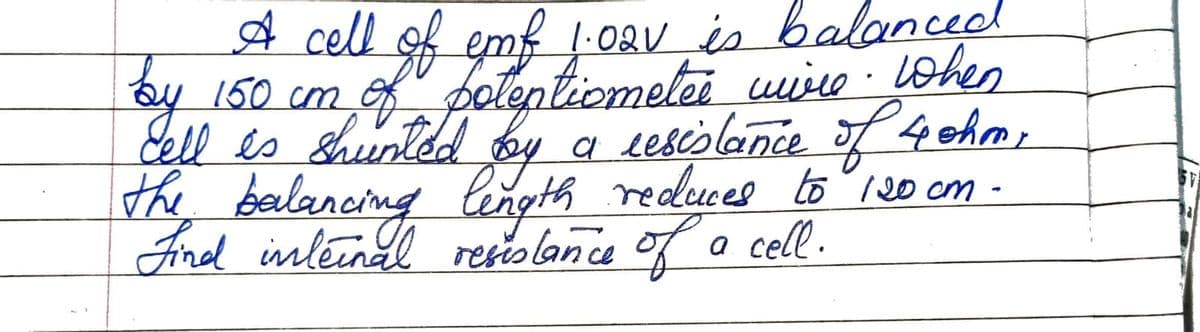 A cell of emf 1.02V is balanced
by 150 cm of potentiometer wire. When
cell is shunted by a resistance of 4 ohm,
the balancing length reduces to 120 cm.
Find internal resistance of a cell.